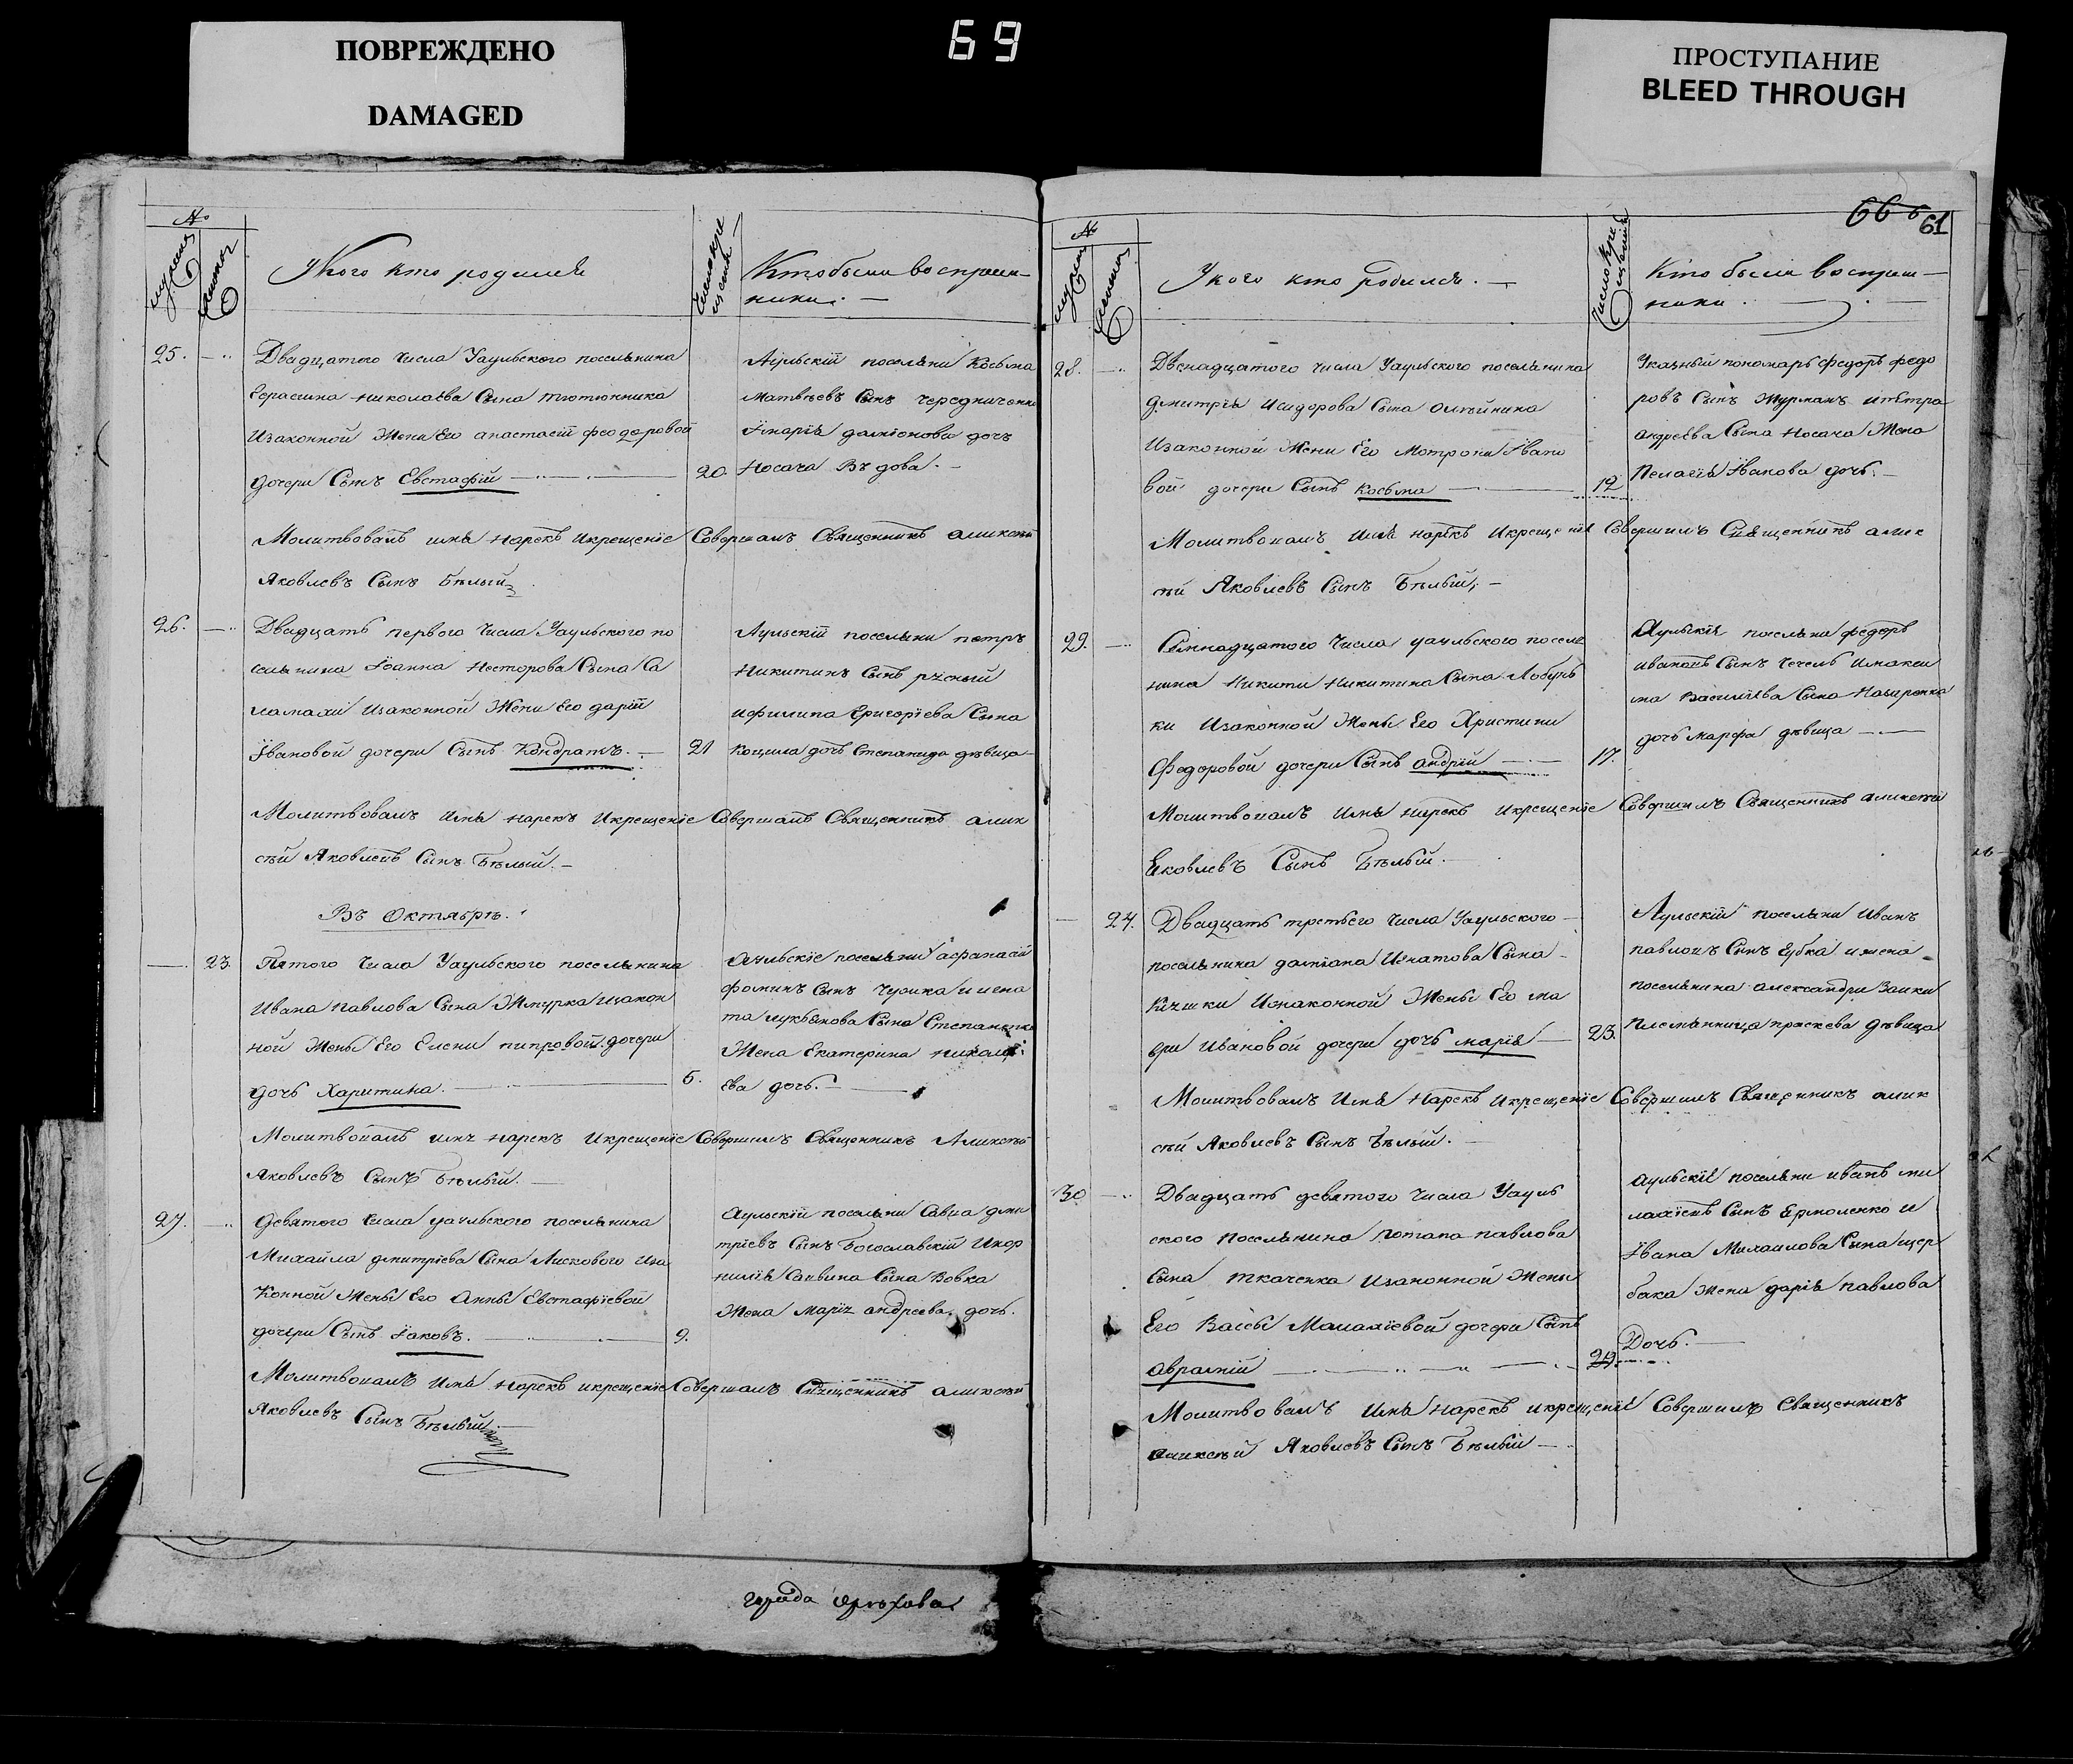 ПОВРЕЖДЕНО
DAMAGED
69
ПРОСТУПАНИЕ
BLEED THROUGH
66 61
№
У кого кто родился
Число крещения
Кто были воспреем-
ники. —
25. Двадцатого числа Уаульского поселянина
Герасима Николаева Сына тютюнника
Изаконной Жени Его анастасіи феодоровой
дочери Сынъ Евстафій 20
Аульскій поселяни Косьма
Матвѣевъ Сынъ чередниченко
Iмарія даміонова дочь
Носача Въдова. —
Молитвовалъ имя нарекъ Икрещеніе Совершалъ Священникъ аликсѣй
Яковлевъ Сынъ Бѣлый
26. Двадцать перваго числа Уаульского по
селянина Іоанна Несторова Сына Са
ламахи Изаконной Жени Его даріи
Iвановой дочери Сынъ Кондратъ. — 21
Аульскій поселяни петръ
Никитинъ Сынъ
ифилипа Григоріева Сына
дочь Степанида дѣвица
Молитвовалъ Имя нарекъ Икрещеніе Совершалъ Священникъ алик
сѣй Яковлевъ Сынъ Бѣлый. —
Въ Октябрѣ.
23. Пятого числа Уаульского поселянина
Ивана павлова Сына Жмурка Изакон
ной Жены Его Елени дочери
дочь Харитина. 5.
Аульскіе поселяни афанасій
фоминъ Сынъ Чузика
та лукьянова Сына Степаненка
Жена Екатерина
ева дочь. —
Молитвовалъ имя нарекъ Икрещеніе Совершилъ Священникъ Аликсѣй
Яковлевъ Сынъ Бѣлый. —
27. девятого числа уаульского поселянина
Михайла дмитріева Сына Лискового Иза
конной Жены Его Анны Евстафіевой
дочери Сынъ Iаковъ. 9.
Аульскій поселяни Савва дми
тріевъ Сынъ Богославскій Икор
нилія Саввина Сына Вовка
Жена Марія андреева дочь.
Молитвовалъ Имя нарекъ икрещеніе Совершалъ Священникъ аликсѣй
Яковлевъ Сынъ Бѣлый
№
У кого кто родился. —
Число Крещенія
Кто были воспреем —
ники.
28. Двенадцатого числа Уаульского поселянина
дмитрія Исидорова Сына олѣйника
Изаконной Жени Его Мотрони Iвано
вой дочери Сынъ Косьма 12
Указный пономарь федоръ федо
ровъ Сынъ Журманъ ипетра
андреева Сына Носача Жена
Пелагія Iванова дочь. —
Молитвовалъ Имя нарекъ Икрещеніе Совершилъ Священникъ алик
сѣй Яковлевъ Сынъ Бѣлый. —
29. Семнадцатого числа уаульского поселя
нина Никити Никитина Сына Лобунь
ки Изаконной Жены Его Христини
Федоровой дочери Сынъ андрій 17.
Аульскія поселяни федоръ
ивановъ Сынъ чечель имакси
ма Васильева Сына Назаренка
дочь марфа дѣвица —
Молитвовалъ Имя нарекъ Икрещеніе Совершилъ Священникъ аликсѣй
Яковлевъ Сынъ Бѣлый. —
24. Двадцать третьего числа Уаульского
поселянина даміана Игнатова Сына
Кичшки Изаконной Жены Его ма
ври Ивановой дочери дочь марія 23.
Аульскій поселяни Иванъ
павловъ Сынъ Губка ижена
поселянина александри Заики
племянница праскева дѣвица
Молитвовалъ Имя Нарекъ Икрещеніе Совершилъ Священникъ алик
сѣй Яковлевъ Сынъ Бѣлый. —
30 Двадцать девятого числа Уауль
ского поселянина потапа павлова
Сына ткаченка Изаконной Жены
Его Вассы Маналіевой дочери Сынъ
аврамій 29.
аульскіе поселяни иванъ ма
лахіевъ Сынъ Ермоленко и
Iвана Михаилова Сына щер
бака Жена дарія павлова
Дочь. —
Молитвовалъ Имя Нарекъ икрещеніе Совершилъ Священникъ
аликсѣй Яковлевъ Сынъ Бѣлый —
города орѣхова